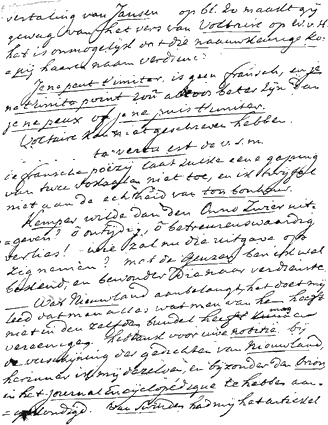 vertaling van Jansen op bl. 20 maakt gij
gewag van het vers van Voltaire op W. v. H.
het is onmogelijk dat die naauwkeurige ko-
=pij haaren naam verdien:
Je ne peut t'imiter, is geen fransch, en je
ne t'imite point zou alvoor beter zijn dan
je ne peux of je ne puis t'imiter.
Voltaire kan niet geschreven hebben.
ta vertu est de v. s. m.
de fransche poëzij laat zulke eene gaping
van twee vokaalen niet toe, en ik twijffel
niet aan de echtheid van ton bonheur.
Kemper wilde dan den Onno Zwier uit-
=geven? ô ontijdig, ô betreurenswaardig
verlies! wie zal nu die uitgave op
zig nemen? met de Geuzen ben ik wel
bekend, en bewonder Die naar verdienste.
Wat Nieuwland aanbelangt, het doet mij
leed dat men alles wat men van hem heeft
niet in den zelfden bundel heeft
vereenigd. Hebt dank voor uwe notitie bij
de verschijning der gedichten van Nieuwland,
herinner ik mij dezelven, en bijzonder dan Orion
in het Journal Encyclopédique te hebben aan-
=gekondigd. Van Swinden had mij het artickel